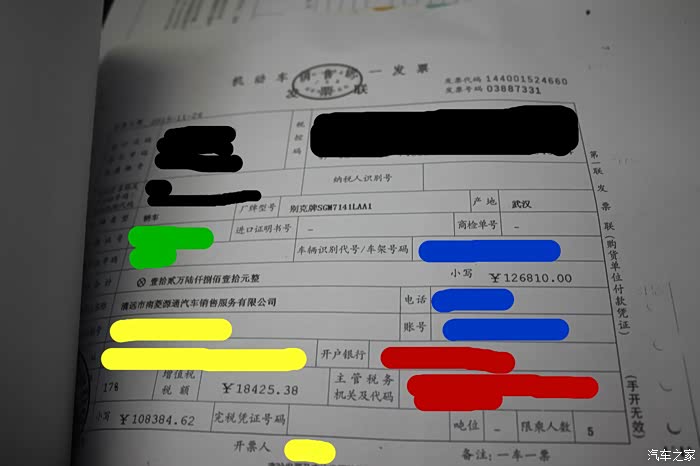 机动车销售统一发票
发票联
发票代码 144001524660
发票号码 03887331
税控码
纳税人识别号
轿车 厂牌型号 别克牌SGM7141LAA1 产地 武汉
进口证明书号 - 商检单号 -
车辆识别代号/车架号码
⊗ 壹拾贰万陆仟捌佰壹拾元整 小写 ￥126810.00
清远市南菱源通汽车销售服务有限公司 电话
账号
开户银行
17% 增值税税额 ￥18425.38 主管税务机关及代码
小写 ￥108384.62 完税凭证号码 吨位 - 限乘人数 5
开票人 备注:一车一票
第一联 发票联(购货单位付款凭证)
(手开无效)
汽车之家